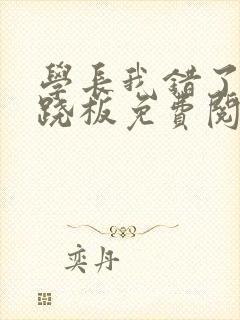 學長我錯了
跷板免費閱
奕丹